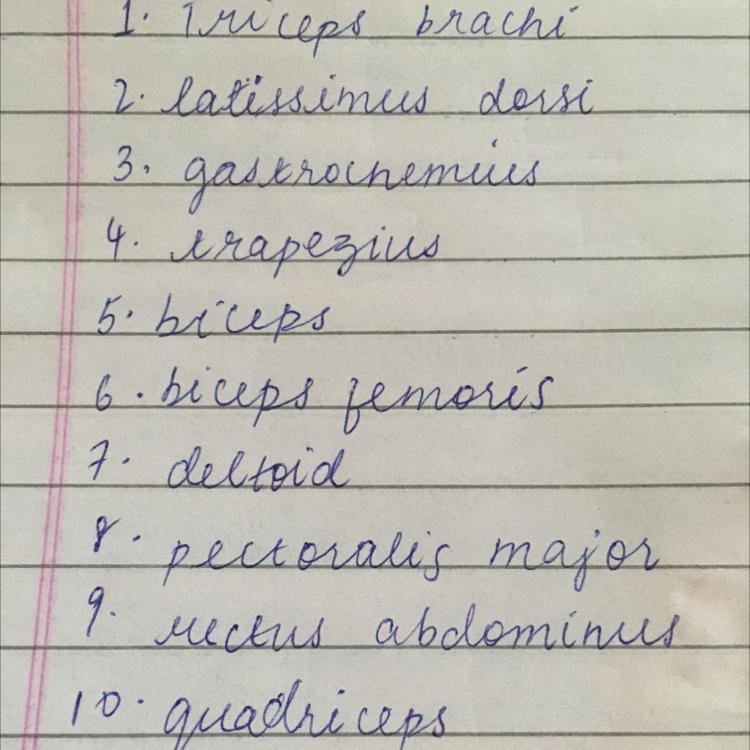 1. Triceps brachi
2. latissimus dorsi
3. gastrocnemius
4. trapezius
5. biceps
6. biceps femoris
7. deltoid
8. pectoralis major
9. rectus abdominus
10. quadriceps